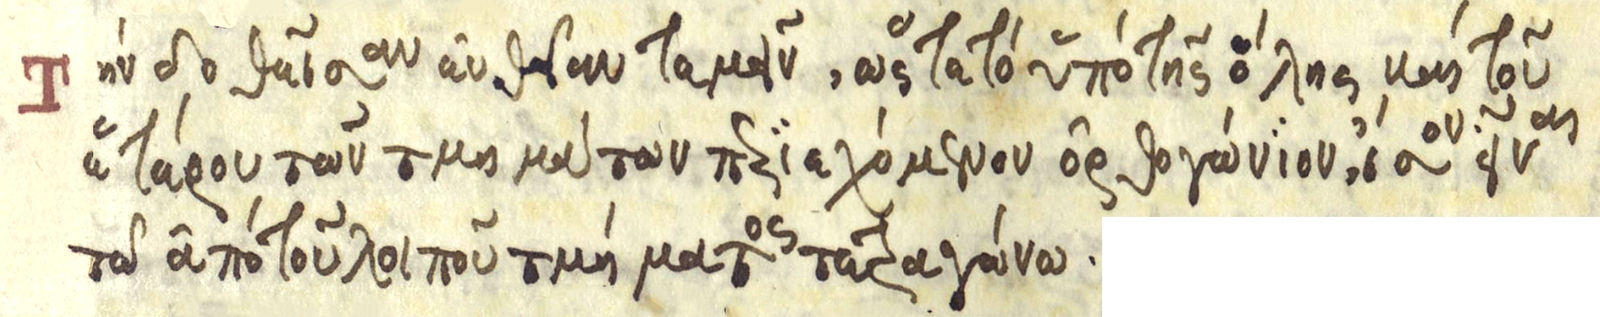 Τὴν δοθεῖσαν εὐθεῖαν τεμεῖν, ὥστε τὸ ὑπὸ τῆς ὅλης καὶ τοῦ
ἑτέρου τῶν τμημάτων περϊεχόμενον ὀρθογώνϊον, ἴσον εἶναι
τῶ ἀπὸ τοῦ λοιποῦ τμήματος τετραγώνω.